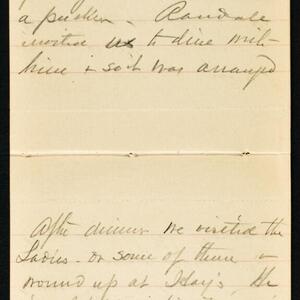 a pusher - Randale
invited us to dine with
him & so it was arranged
After dinner we visited the
Ladies - or some of them &
wound up at Hay's, the